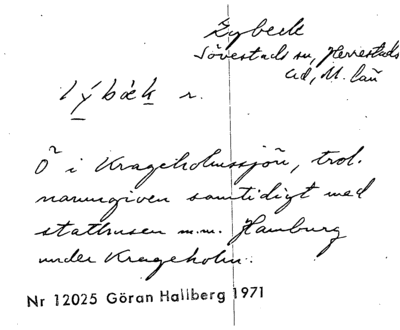 Lybeck
Sövestads sn, Herrestads
hd, M. län
lýbæk n.
Ö i Krageholmssjön, trol.
namngiven samtidigt med
stathusen m.m. Hamburg
under Krageholm.
Nr 12025 Göran Hallberg 1971